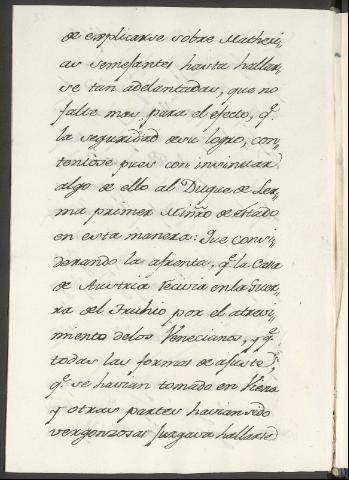 de explicarse sobre Matheri,,
as semejantes hasta hallar,,
se tan adelantadas, que no
falte mas para el efecto, q.e
la seguridad de su logro, con,,
tentose pues con insinuar
algo de ello al Duque de Ler,,
ma primer Minro de estado
en esta manera: Que consi,,
derando la afrenta, q.e la Casa
de Austria recivia en la Guer,,
ra del Fruhio por el atrevi,,
miento delos Venecianos, y q.e
todas las formas de ajuste,
q.e se havian tomado en Viena
y otras partes havian sido
vergonzosas juzgava hallarse